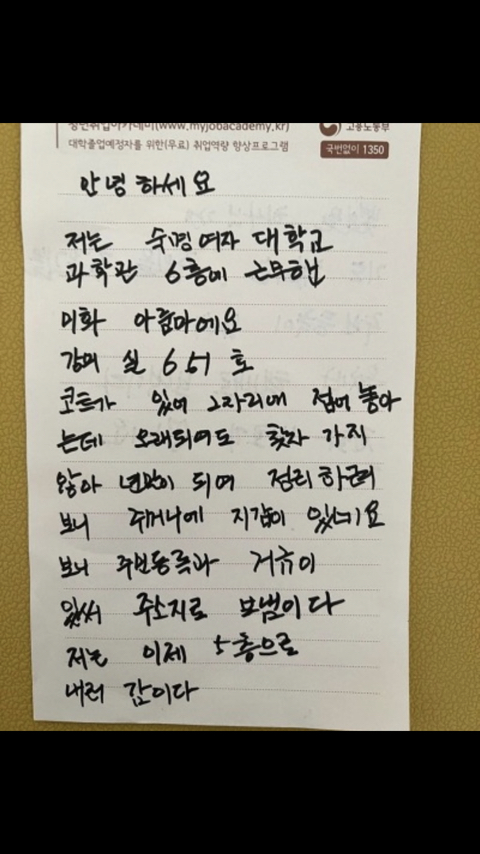 청년취업아카데미(www.myjobacademy.kr)
대학졸업예정자를 위한(무료) 취업역량 향상프로그램
고용노동부
국번없이 1350
안녕하세요
저는 숙명여자 대학교
과학관 6층에 근무햅
미화 아줌마에요
강의 실 651 호
코트가 있어 그자리에 접어 놓아
는데 오래되여도 찾자 가지
않아 년말이 되여 정리 하려
보니 주머니에 지갑이 있네요
보니 주민등록과 거규이
있써 주소지로 보냄이다
저는 이제 5층으로
내려 감이다